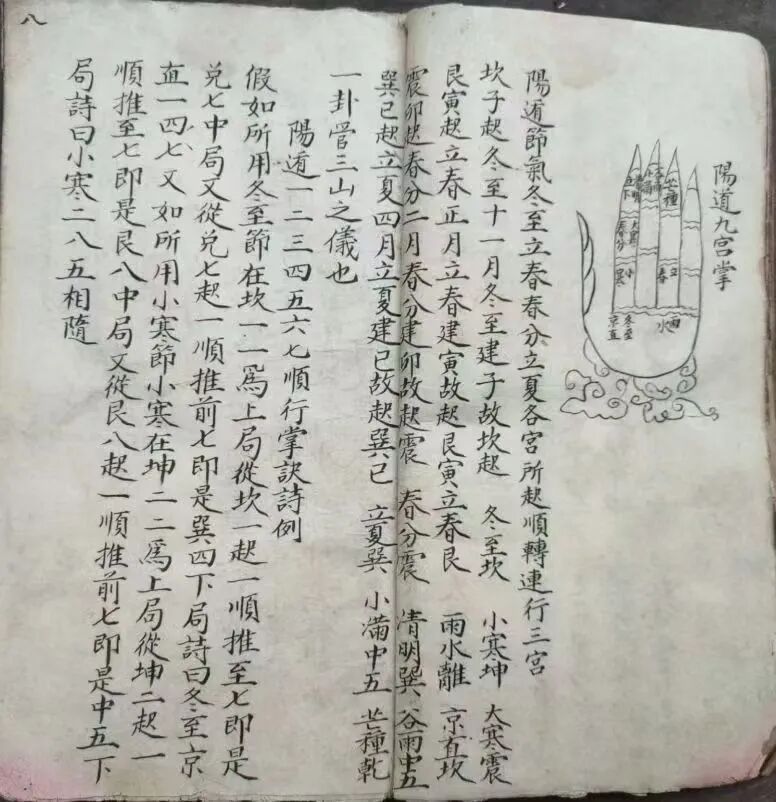 陽道九宮掌
芒種
春分
大寒
小寒
立春
冬至
京直
雨水
陽遁節氣冬至立春春分立夏各宮所起順轉連行三宮
坎子起冬至十一月冬至建子故坎起 冬至坎 小寒坤 大寒震
艮寅起立春正月立春建寅故起艮寅立春艮 雨水離 京直坎
震卯起春分二月春分建卯故起震 春分震 清明巽 谷雨中五
巽巳起立夏四月立夏建巳故起巽巳 立夏巽 小滿中五 芒種乾
一卦管三山之儀也
陽遁一二三四五六七順行掌訣詩例
假如所用冬至節在坎一一爲上局從坎一起一順推至七即是
兑七中局又從兑七起一順推前七即是巽四下局詩曰冬至京
直一四七又如所用小寒節小寒在坤二二爲上局從坤二起一
順推至七即是艮八中局又從艮八起一順推前七即是中五下
局詩曰小寒二八五相隨
八